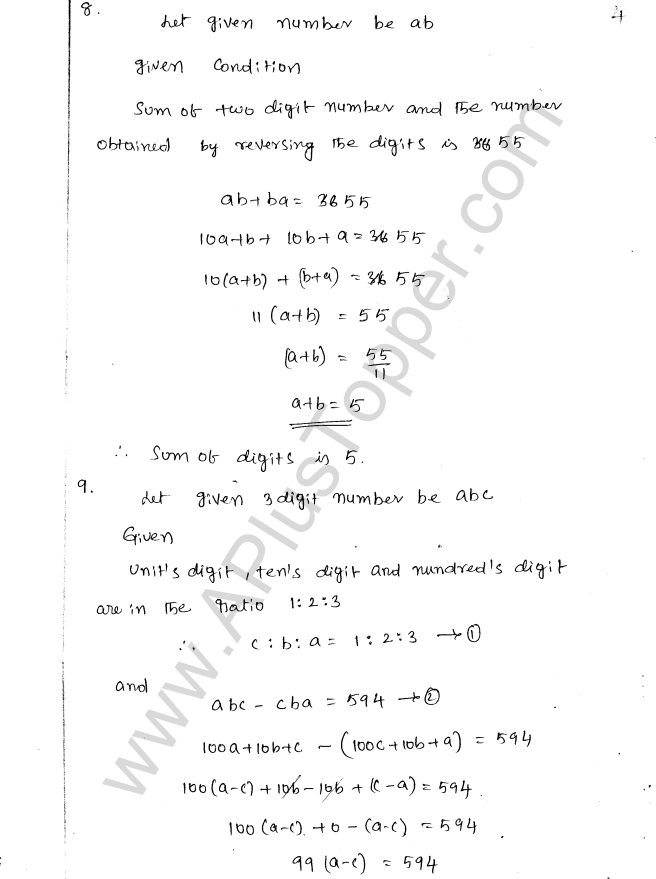 8.
4
Let given number be ab
given condition
Sum of two digit number and the number
obtained by reversing the digits is 55
ab+ba = 55
10a+b+ 10b+a = 55
10(a+b) + (b+a) = 55
11 (a+b) = 55
(a+b) = 55/11
a+b = 5
∴ Sum of digits is 5.
9.
Let given 3 digit number be abc
Given
Unit's digit, ten's digit and hundred's digit
are in the ratio 1:2:3
∴ c : b : a = 1 : 2 : 3 → ①
and
abc - cba = 594 → ②
100a+10b+c - (100c+10b+a) = 594
100(a-c) + 10b - 10b + (c-a) = 594
100 (a-c) + 0 - (a-c) = 594
99 (a-c) = 594
www.APlusTopper.com